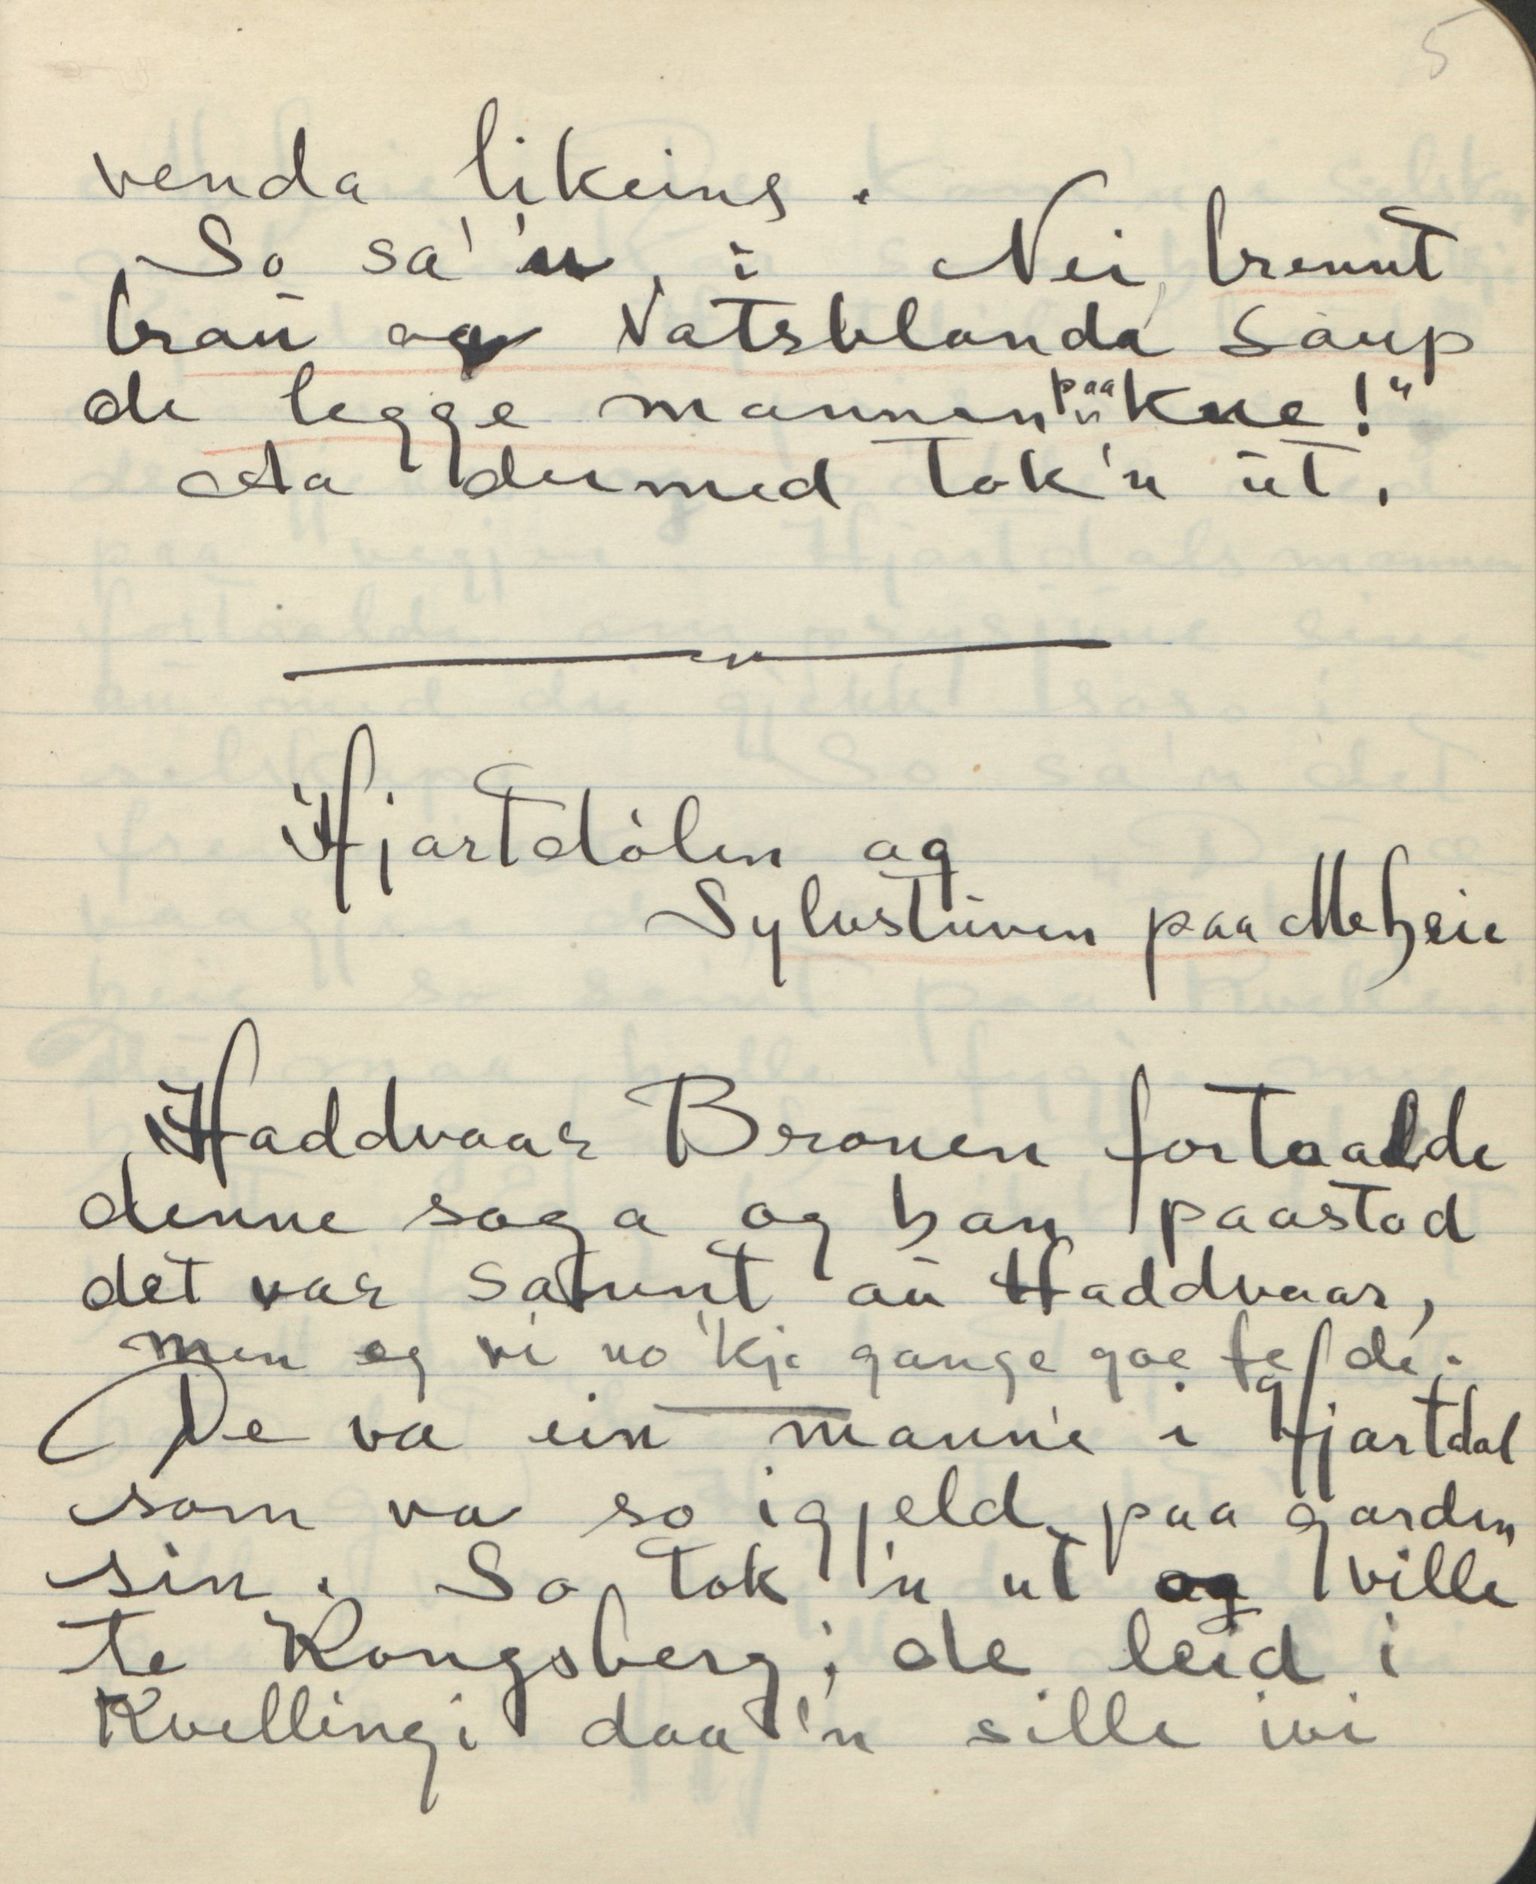 5
venda likeins.
So sa' 'n, : Nei, brennt
brau og Vatsblanda saup
de legge mannen paa kne!"
Aa dermed tok'n ut.
Hjartdølen og
Sylvstuven paa Meheie
Haddvaar Bronen fortaalde
denne soga og han paastod
det var satunt au Haddvaar,
men eg vi no 'kje gange goe fe de.
De va ein manne i Hjartdal
som va so igjeld paa garden
sin. So tok 'n ut og ville
te Kongsberg; de leid i
Kvellingi daa 'n sille ivi